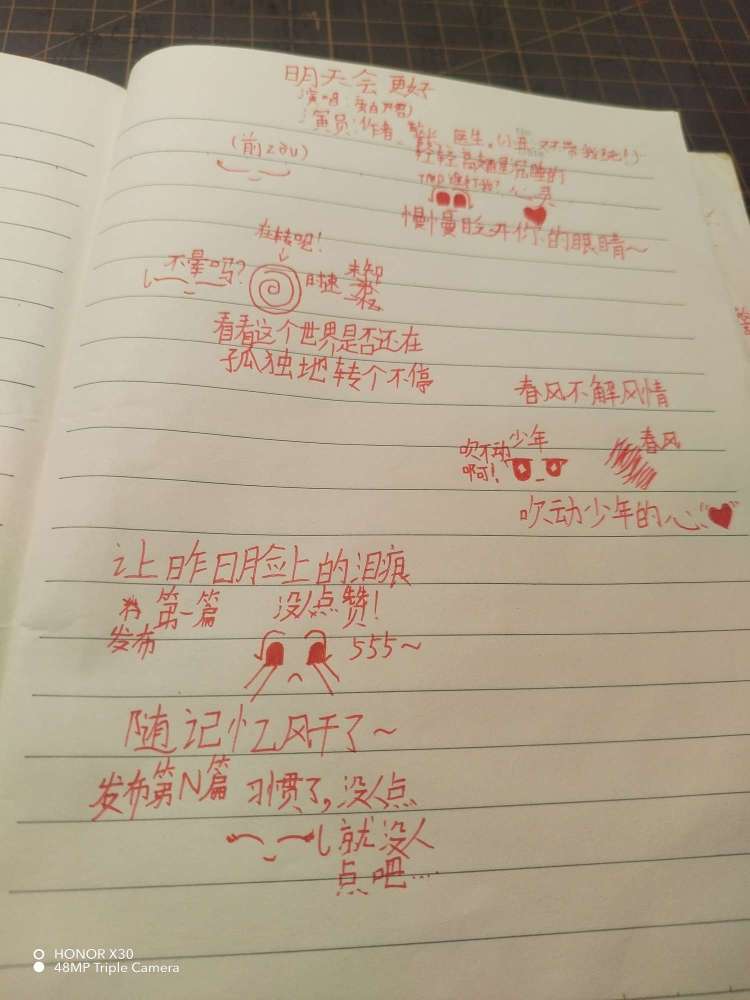 明天会更好
演唱:
演员:作者、 医生,
(前zòu)
轻轻 的
心灵
慢慢睁开你的眼睛~
在转吧!
不晕吗?
时速 未知
看看这个世界是否还在
孤独地转个不停
春风不解风情
吹不动
啊!
少年
春风
吹动少年的心
让昨日脸上的泪痕
第一篇 没人点赞!
发布
555~
随记忆风干了~
发布第N篇 习惯了,没人点
就没人
点吧……
HONOR X30
48MP Triple Camera